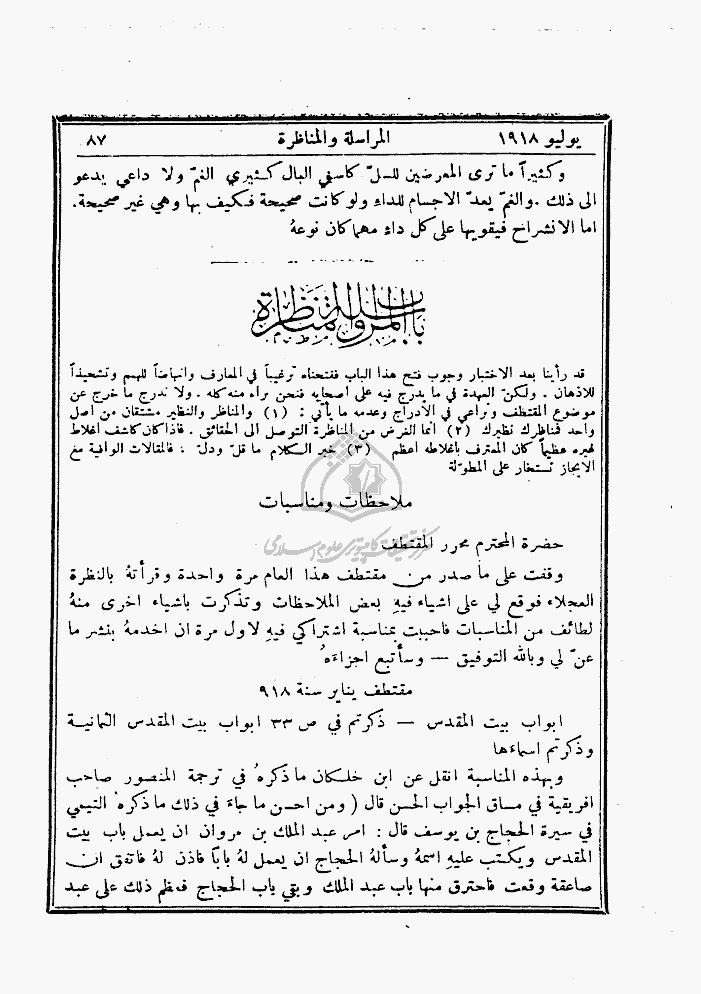 يوليو ١٩١٨ المراسلة والمناظرة ٨٧
وكثيراً ما ترى المعرضين للسلّ كاسفي البال كثيري الغمّ ولا داعي يدعو
الى ذلك . والغمّ يعدّ الاجسام للداء ولو كانت صحيحة فكيف بها وهي غير صحيحة .
اما الانشراح فيقويها على كل داءٍ مهما كان نوعهُ
باب المراسلة والمناظرة
قد رأينا بعد الاختبار وجوب فتح هذا الباب ففتحناه ترغيباً في المعارف وانهاضاً للهمم وتشحيذاً
للاذهان . ولكنّ العهدة في ما يدرج فيه على أصحابه فنحن براء منه كله . ولا ندرج ما خرج عن
موضوع المقتطف ونراعي في الادراج وعدمه ما يأتي : (١) والمناظر والنظير مشتقان من اصل
واحد فمناظرك نظيرك (٢) انما الغرض من المناظرة التوصل الى الحقائق . فاذا كان كاشف اغلاط
غيره عظيماً كان المعترف باغلاطه اعظم (٣) خير الكلام ما قلّ ودلّ . فالمقالات الوافية مع
الايجاز تستخار على المطوّلة
ملاحظات ومناسبات
حضرة المحترم محرر المقتطف
مركز تحقيقات كامپيوتری علوم اسلامی
وقفت على ما صدر من مقتطف هذا العام مرة واحدة وقرأتهُ بالنظرة
العجلاء فوقع لي على اشياء فيهِ بعض الملاحظات وتذكرت باشياء اخرى منهُ
لطائف من المناسبات فاحببت بمناسبة اشتراكي فيهِ لاول مرة ان اخدمهُ بنشر ما
عنّ لي وبالله التوفيق — وسأتبع اجزاءَهُ
مقتطف يناير سنة ٩١٨
ابواب بيت المقدس — ذكرتم في ص ٣٣ ابواب بيت المقدس الثمانية
وذكرتم اسماءَها
وبهذه المناسبة انقل عن ابن خلكان ما ذكرهُ في ترجمة المنصور صاحب
افريقية في مساق الجواب الحسن قال ( ومن احسن ما جاءَ في ذلك ما ذكرهُ التيمي
في سيرة الحجاج بن يوسف قال : امر عبد الملك بن مروان ان يعمل باب بيت
المقدس ويكتب عليهِ اسمهُ وسألهُ الحجاج ان يعمل لهُ باباً فاذن لهُ فاتفق ان
صاعقة وقعت فاحترق منها باب عبد الملك وبقي باب الحجاج فعظم ذلك على عبد